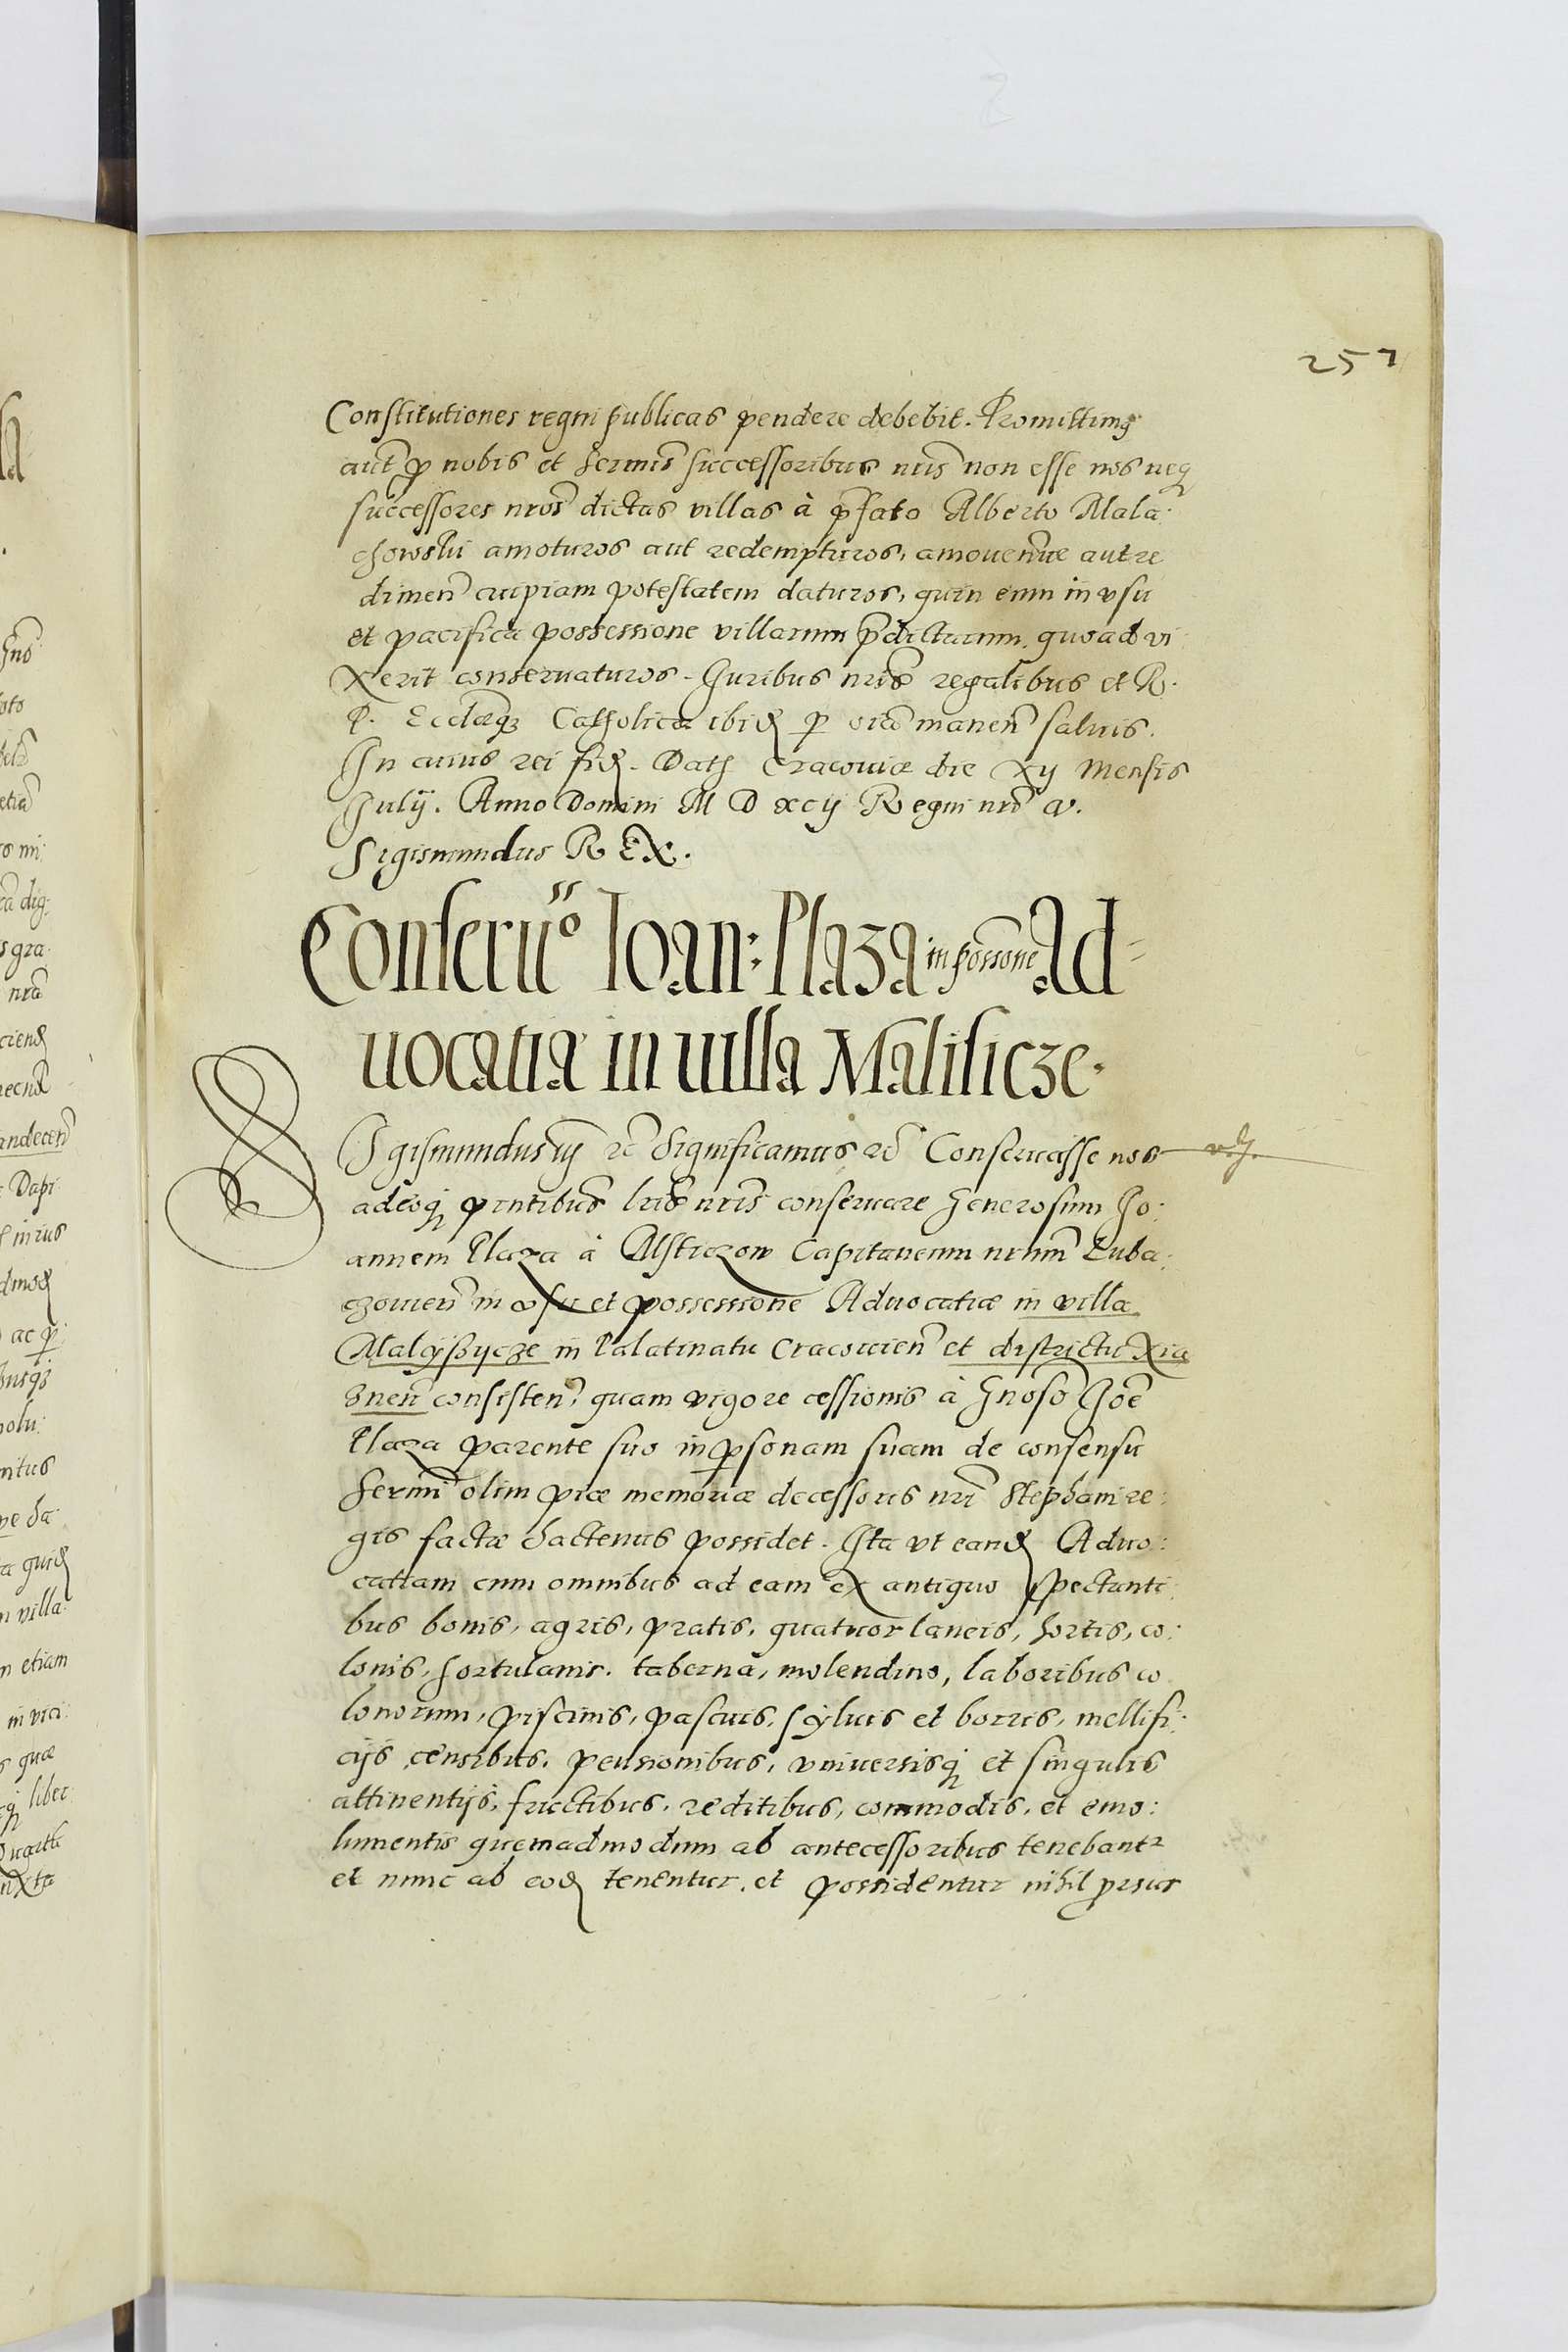 257
Constitutiones regni publicas pendere debebit. Promittimꝰ
aut̃ ꝓ nobis et Serm̃is successoribus nr̃is non esse nos neqꝫ
successores nr̃os dictas villas à p̃fato Alberto Mala:
chowski amoturos aut redempturos, amouen̄ue aut re
dimen̄ cuipiam potestatem daturos, quin eum in vsu
et pacifica possessione villarum p̃dictarum, quoad vi:
xerit conseruaturos. Juribus nr̃is regalibus et R.
P. Eccl̃æqꝫ Catholicæ ibid ꝑ oĩa manen̄ saluis.
In cuius rei fid. Dat Cracouiæ die xij Mensis
Julij. Anno Domini M D xcij Regni nr̃i v.
Sigismundus REX.
Conseruº Ioan: Plaza in possone Ad-
uocatiæ in uilla Malisicze.
SIgismundus iij ꝛc̃ Significamus ꝛc̃ Conseruasse nos
adeoqꝫ p̃ntibus lr̃is nr̃is conseruare Generosum Jo:
annem Plaza à Msticzow Capitaneum nrum̃ Luba:
czouien̄ in vsu et possessione Aduocatiæ in villa
Malÿssycze in Palatinatu Cracouien̄ et districtu Xia
znen̄ consisten̄, quam vigore cessionis à Gnoso Joẽ
Plaza parente suo in ꝑsonam suam de consensu
Serm̃i olim piæ memoriæ decessoris nr̃i Stephani re:
gis factæ hactenus possidet. Ita vt eand Aduo:
catiam cum omnibus ad eam ex antiquo spectanti:
bus bonis, agris, pratis, quatuor laneis, hortis, co:
lonis, hortulanis, taberna, molendino, laboribus co
lonorum, piscinis, pascuis, syluis et borris, mellifi:
cijs censibus, pensionibus, vniuersisqꝫ et singulis
attinentijs, fructibus, reditibus, commodis, et emo:
lumentis quemadmodum ab antecessoribus tenebant²
et nunc ab eod tenentur, et possidentur nihil prorsus